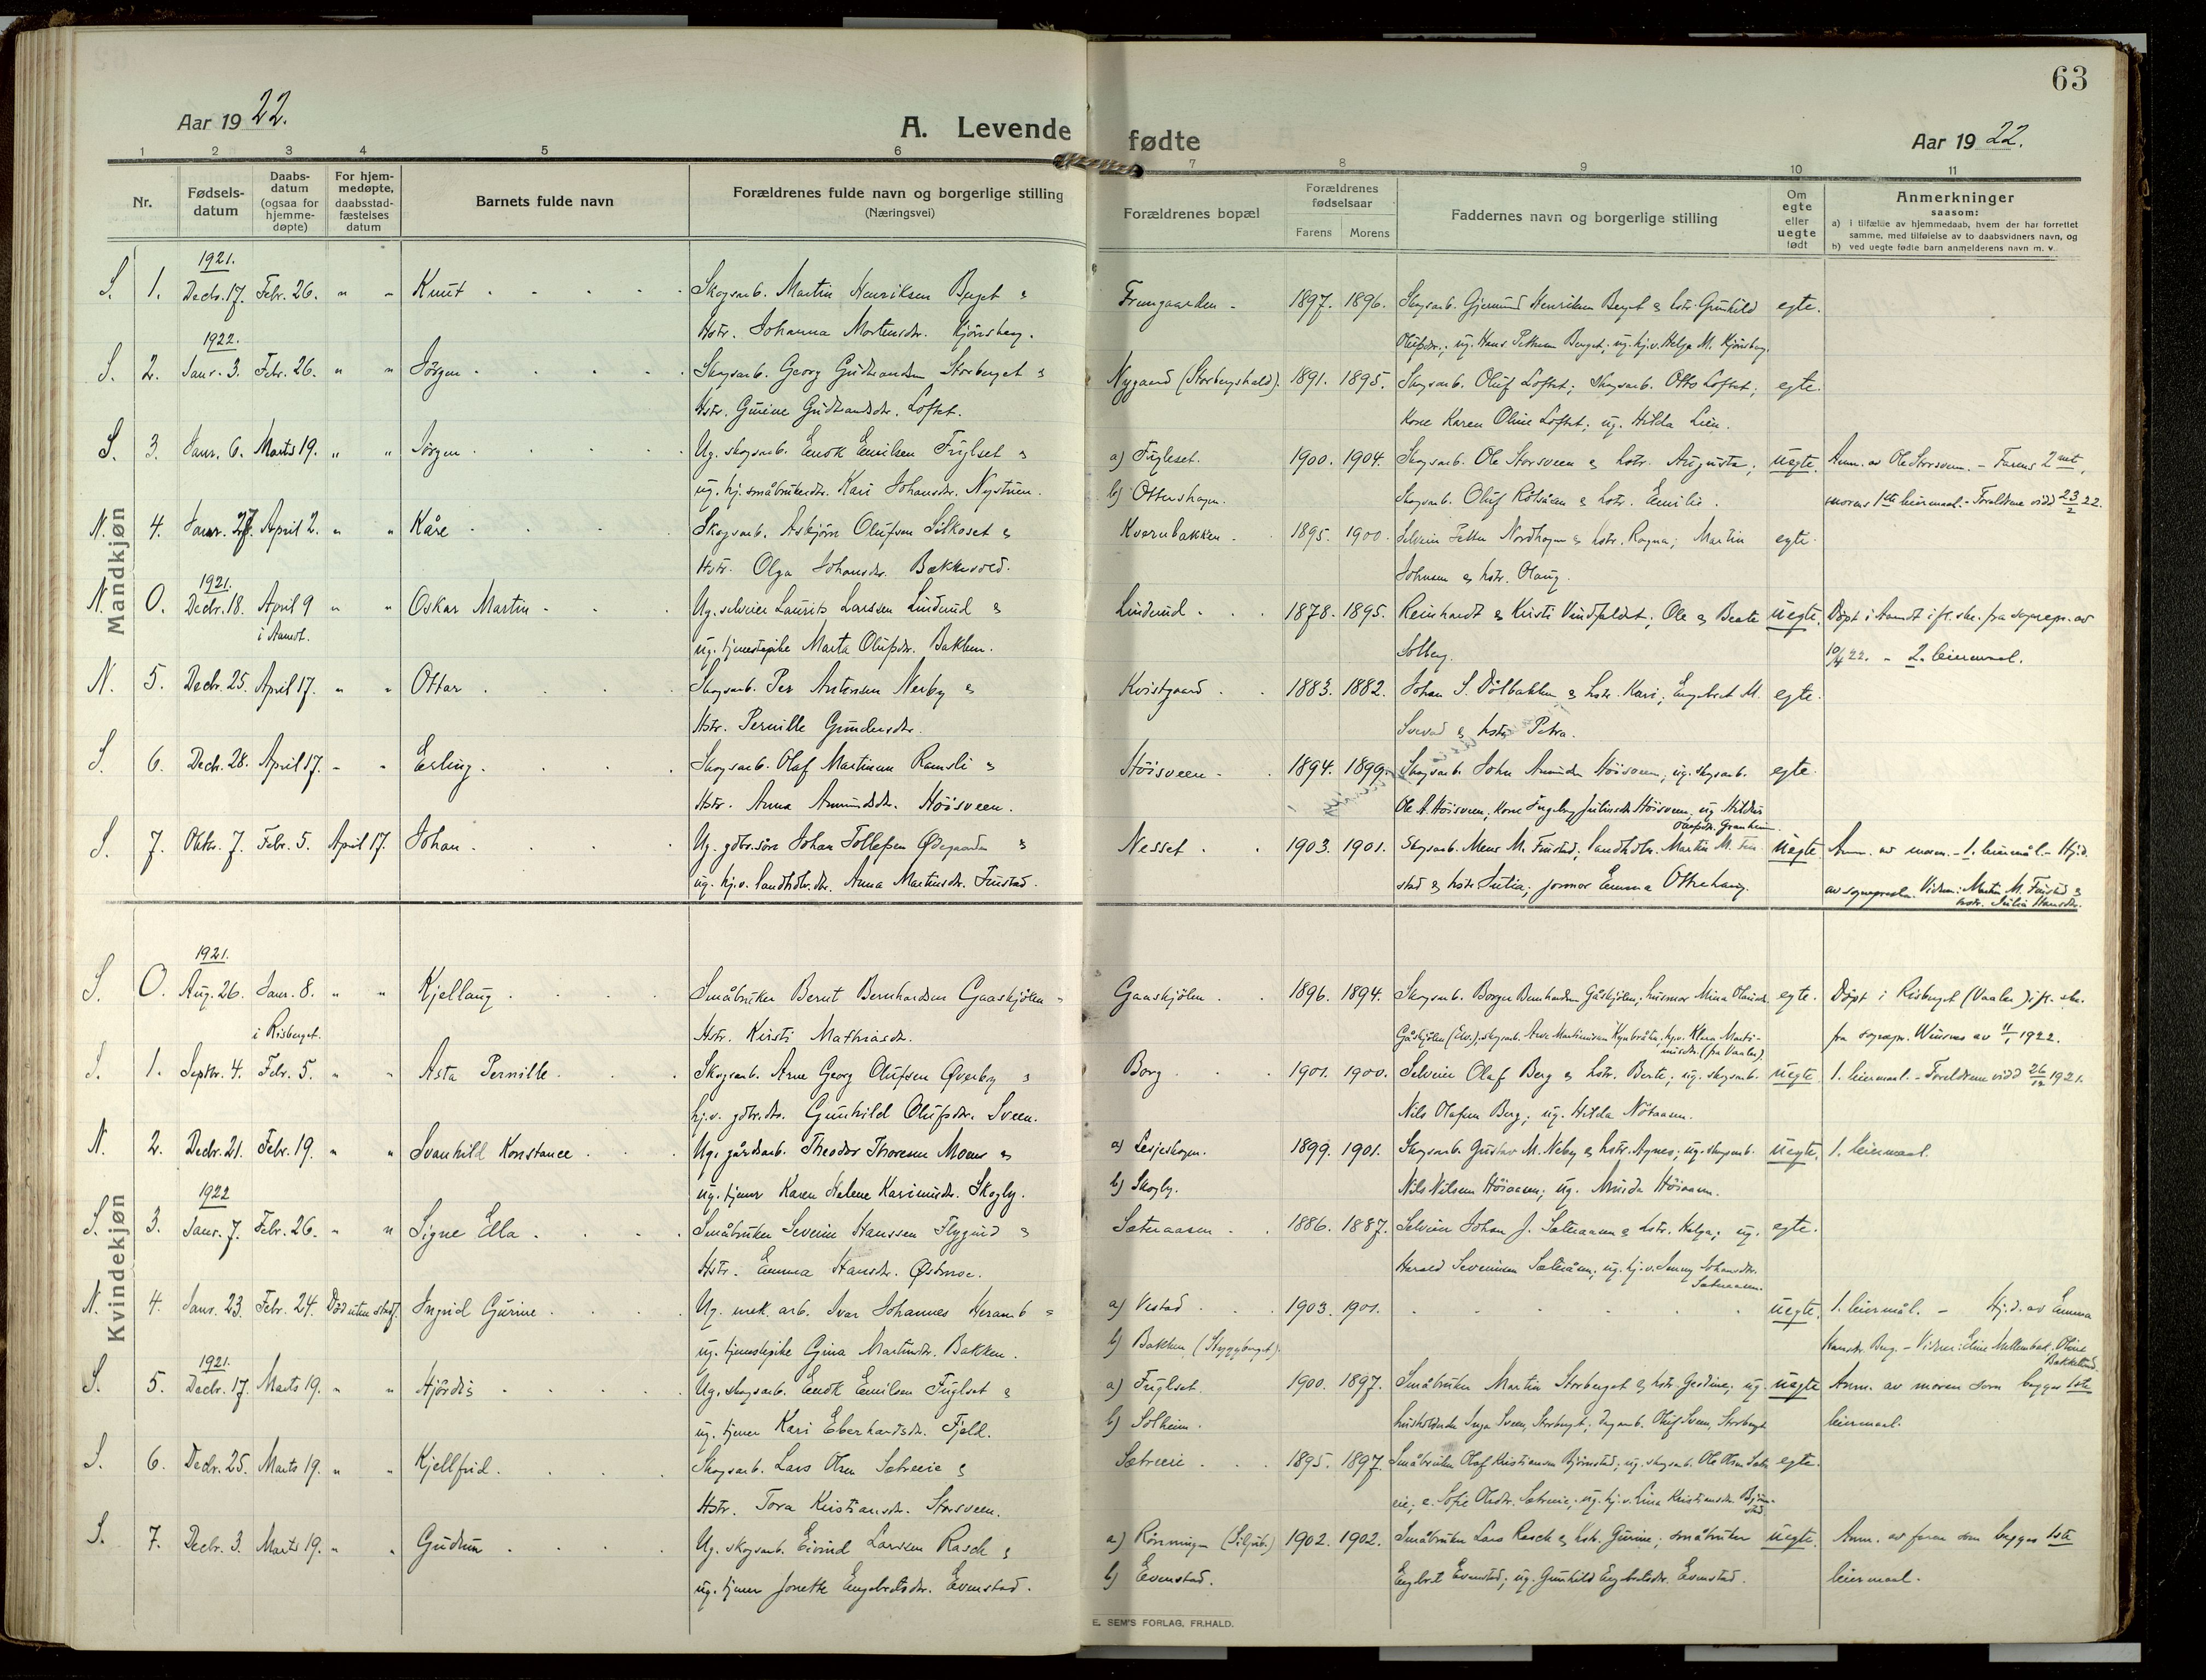 63
Aar 1922.
A. Levende fødte
Aar 1922.
1 2 3 4 5 6 7 8 9 10 11
Nr.
Fødselsdatum
Daabsdatum (ogsaa for hjemmedøpte)
For hjemmedøpte, daabsstadfæstelses datum
Barnets fulde navn
Forældrenes fulde navn og borgerlige stilling
(Næringsvei)
Forældrenes bopæl
Forældrenes fødselsaar
Farens Morens
Faddernes navn og borgerlige stilling
Om egte eller uegte født
Anmerkninger
saasom:
a) i tilfælde av hjemmedaab, hvem der har forrettet
samme, med tilføielse av to daabsvidners navn, og
b) ved uegte fødte barn anmelderens navn m. v.
Mandkjøn
1921.
S. 1. Decb. 17. Febr. 26. " " Knut Skogsarb. Martin Henriksen Berget & Fremgaarden 1897. 1896. Skogsarb. Gjermund Henriksen Berget & hstr. Gunhild egte.
Hstr. Johanna Mortensdr. Kjønsberg. Olufsdr.; ug. Hans Pettersen Berget; ug. hj.v. Helga M. Kjønsberg.
1922.
S. 2. Janr. 3. Febr. 26. " " Jørgen Skogsarb. Georg Gudbrandsen Storberget & Nygaard (Storbergshold). 1891. 1895. Skogsarb. Oluf Loftet; skogsarb. Otto Loftet; egte.
Hstr. Gurine Gudbrandsdr. Loftet. Kone Karen Oline Loftet; ug. Hilda Lien.
S. 3. Janr. 6. Marts 19. " " Jørgen Ug. skogsarb. Enok Emilsen Fuglset & a) Fugleset. 1900. 1904. Skogsarb. Ole Storsveen & hstr. Augusta; uegte. Anm. av Ole Storsveen. - Farens 2net,
ug. hj. småbrukerdr. Kari Johansdr. Nystuen. b) Ottershagen. Skogsarb. Oluf Råtåsen & hstr. Emilie. morens 1ste leiermaal. - Foreldrene vidd 23/2 22.
N. 4. Janr. 27. April 2. " " Kåre Skogsarb. Asbjørn Olufsen Silkoset & Kvernbakken 1895. 1900. Selveier Petter Nordhagen & hstr. Ragna; Martin egte.
Hstr. Olga Johansdr. Bakkevold. Johnsen & hstr. Olaug.
1921.
N. 0. Decbr. 18. April 9 " " Oskar Martin Ug. selveier Laurits Larssen Linderud & Linderud 1878. 1895. Reinhardt & Kirsti Vindfaldet; Ole & Beate uegte. Døpt i Aamot ifl. skr. fra sognepr. av
i Aamot. ug. tjenestepike Marta Olufsdr. Bakken. Solberg. 10/4 22. - 2. leiermaal.
N. 5. Decbr. 25. April 17. " " Ottar Skogsarb. Per Antonsen Nerby & Kvistgaard 1883. 1882. Johan S. Dølbakken & hstr. Kari; Engebret M. egte.
Hstr. Pernille Gundersdr. & hstr. Petra.
S. 6. Decb. 28. April 17. " " Erling Skogsarb. Olaf Martinsen Ramsli & Høisveen 1894. 1899. Skogsarb. John Amundsen Høisveen; ug. skogsarb. egte.
Hstr. Anna Amundsdr. Høisveen. Ole A. Høisveen; kone Ingeborg Juliusdr. Høisveen; ug. Hildur
Olufsdr. Granheim.
S. 7. Oktbr. 7. Febr. 5. April 17. Johan Ug. gdbr.søn Johan Tollefsen Ødegaarden & Nesset 1903. 1901. Skogsarb. Mens M. Furstad; landhdlr. Martin M. Fur- uegte Anm. av moren. - 1. leiermål. - Hj.d.
ug. hj.v. landhdlr.dtr. Anna Martinsdr. Furstad. stad & hstr. Julia; jomor Emma Ottrehaug. av sognepresten. Vidner: Martin M. Furstad &
hstr. Julia Hansdr.
Kvindekjøn
1921.
S. 0. Aug. 26. Janr. 8. " " Kjellaug Småbruker Bernt Bernhardsen Gaaskjølen Gaaskjølen 1896. 1894. Skogsarb. Borger Bernhardsen Gåskjølen; husmor Mina Olausdr. egte. Døpt i Risberget (Vaaler) ifl. skr.
i Risberget. Hstr. Kirsti Mathiasdr. Gåskjølen (Elv.); skogsarb. Arve Martiniusen Kynbråten, hj.v. Klara Marti-
niusdr. (fra Vaaler). fra sognepr. av 11/1 1922.
S. 1. Septbr. 4. Febr. 5. " " Asta Pernille Skogsarb. Arne Georg Olufsen Øverby & Borg 1901. 1900. Selveier Olaf Berg & hstr. Berte; ug. skogsarb. uegte 1. leiermaal. - Foreldrene vidd 26/12 1921.
hj.v. gdbr.dtr. Gunhild Olufsdr. Sveen. Nils Olafsen Berg; ug. Hilda Nötaasen.
N. 2. Decbr. 21. Febr. 19. " " Svanhild Konstance Ug. gårdsarb. Theodor Thoresen Moens & a) Lesjeskogen. 1899. 1901. Skogsarb. Gustav M. Neby & hstr. Agnes; ug. skogsarb. uegte. 1. leiermaal.
ug. tjener Karen Helene Karinusdr. Skogly. b) Skogly. Nils Nilsen Høiaasen; ug. Høiaasen.
1922
S. 3. Janr. 7. Febr. 26. " " Signe Ella Småbruker Severin Hanssen Flygind & Sæteraasen 1886. 1887. Selveier Johan J. Sæteraasen & hstr. Helga; ug. egte.
Hstr. Emma Hansdr. Østmoe. Harald Severinsen Sæteråsen; ug. hj.v. Jenny Johansdtr.
Sæteraasen.
N. 4. Janr. 23. Febr. 24. Død uten stadf. Ingrid Gurine Ug. mek. arb. Ivar Johannes Heramb & a) Vestad 1903. 1901. uegte. 1. leiermål. - Hj.d. av Emma
ug. tjenestepike Gina Martinsdr. Bakken. b) Bakken (Styggberget). Hansdr. Berg. - Vidner: Eline Mellembak. Oline
Bakkelund.
1921.
S. 5. Decbr. 17. Marts 19. " " Hjördis Ug. skogsarb. Enok Emilsen Fuglset & a) Fuglset. 1900. 1897. Småbruker Martin Storberget & hstr. Gestine; ug. uegte Anm. av moren som begges 1ste
ug. tjener Kari Eberhardsdr. Fjeld. b) Solheim. Inga Sveen, Storberget; Oluf Sveen, Storberget leiermaal.
S. 6. Decbr. 25. Marts 19. " " Kjellfrid Skogsarb. Lars Olsen Sætreeie & Sætreeie 1895. 1897. Småbruker Olaf Kristiansen Bjørnstad; ug. skogsarb. Ole Olsen Sætre- egte.
Hstr. Tora Kristiansdr. Storsveen. eie; e. Sofie Olsdr. Sætreeie; ug. hj.v. Lina Kristiansdr. Bjørn-
stad.
S. 7. Decbr. 3. Marts 19. " " Gudrun Ug. skogsarb. Eivind Larssen Rasch & a) Rönningen (Siljub.) 1902. 1902. Småbruker Lars Rasch & hstr. Gurine; småbruker uegte. Anm. av faren som begges 1ste
ug. tjener Jonette Engebretsdr. Evenstad. b) Evenstad. Engebret Evenstad; ug. Gunhild Engebretsdr. Evenstad. leiermaal.
E. SEM'S FORLAG, FR.HALD.